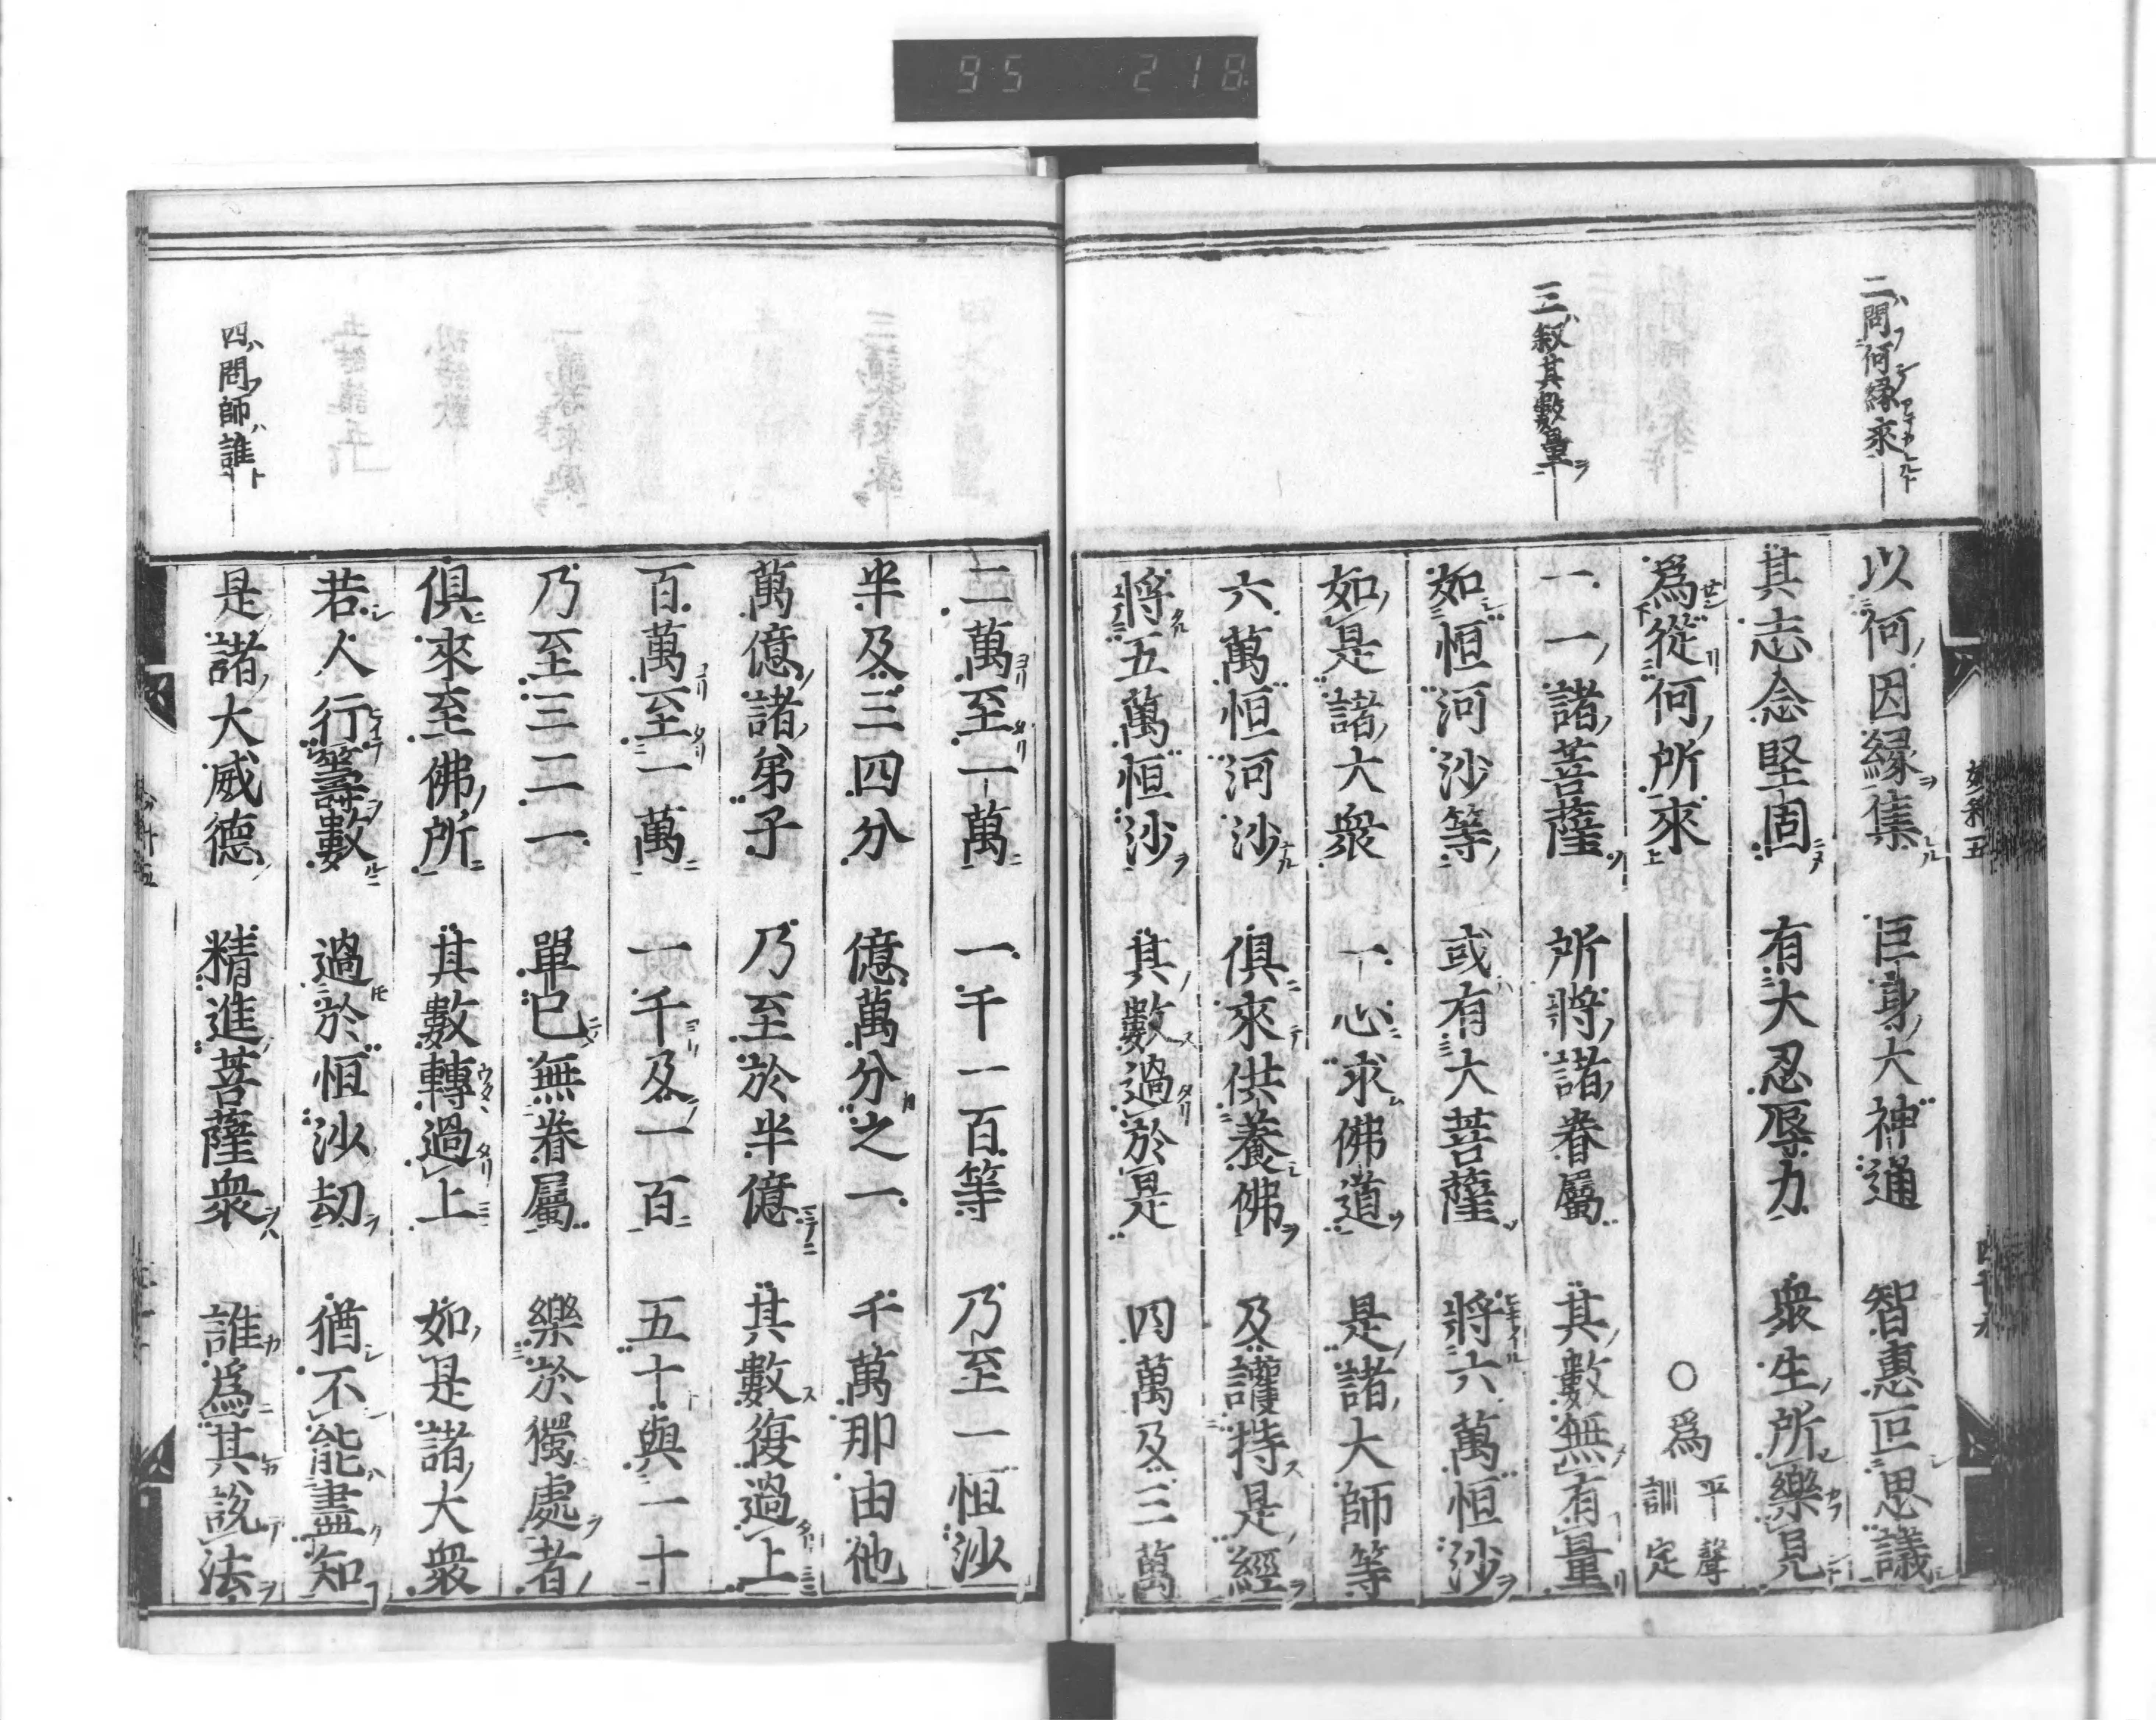 95 218
二問何縁來
三叙其數量
以何因縁集 巨身大神通 智惠叵思議
其志念堅固 有大忍辱力 衆生所樂見
爲從何所來 ○爲 平聲訓定
一一諸菩薩 所將諸眷屬 其數無有量
如恒河沙等 或有大菩薩 將六萬恒沙
如是諸大衆 一心求佛道 是諸大師等
六萬恒河沙 俱來供養佛 及護持是經
將五萬恒沙 其數過於是 四萬及三萬
四問師誰
二萬至一萬 一千一百等 乃至一恒沙
半及三四分 億萬分之一 千萬那由他
萬億諸弟子 乃至於半億 其數復過上
百萬至一萬 一千及一百 五十與一十
乃至三二一 單已無眷屬 樂於獨處者
俱來至佛所 其數轉過上 如是諸大衆
若人行籌數 過於恒沙劫 猶不能盡知
是諸大威德 精進菩薩衆 誰爲其説法